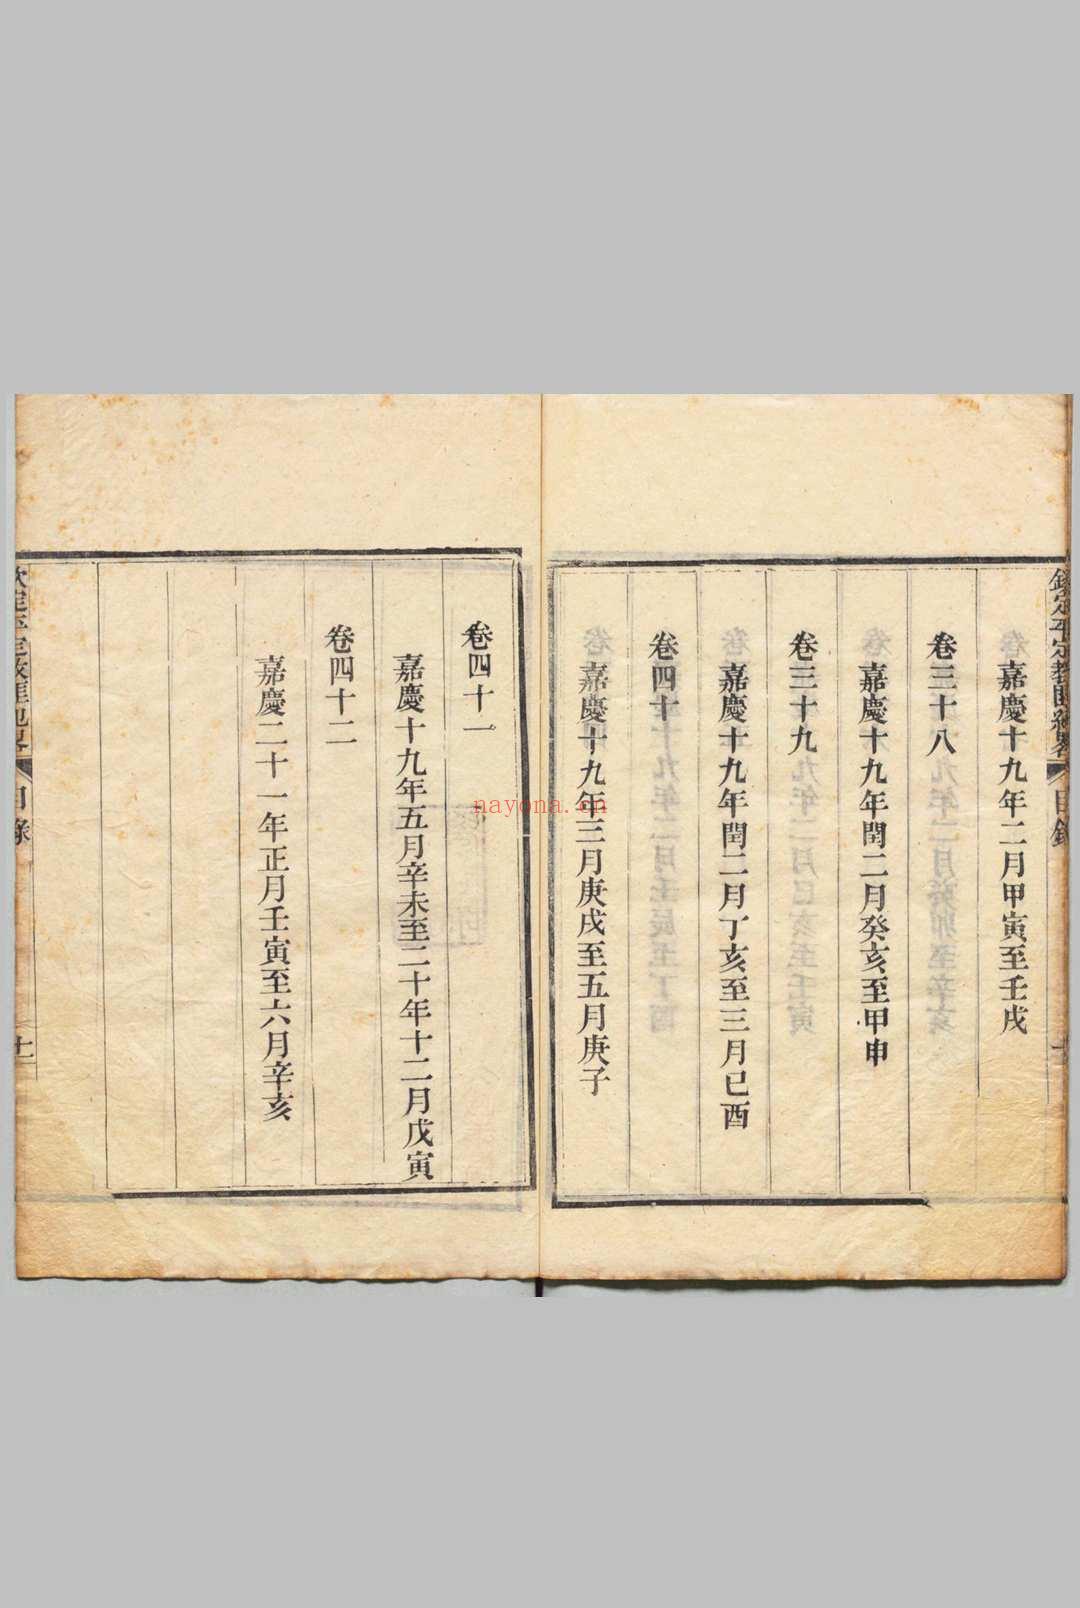 嘉慶十九年二月甲寅至壬戌
卷三十八
嘉慶十九年閏二月癸亥至甲申
卷三十九
嘉慶十九年閏二月丁亥至三月己酉
卷四十
嘉慶十九年三月庚戌至五月庚子
卷四十一
嘉慶十九年五月辛未至二十年十二月戊寅
卷四十二
嘉慶二十一年正月壬寅至六月辛亥
欽定平定教匪紀畧
目錄
十一
nayona.cn